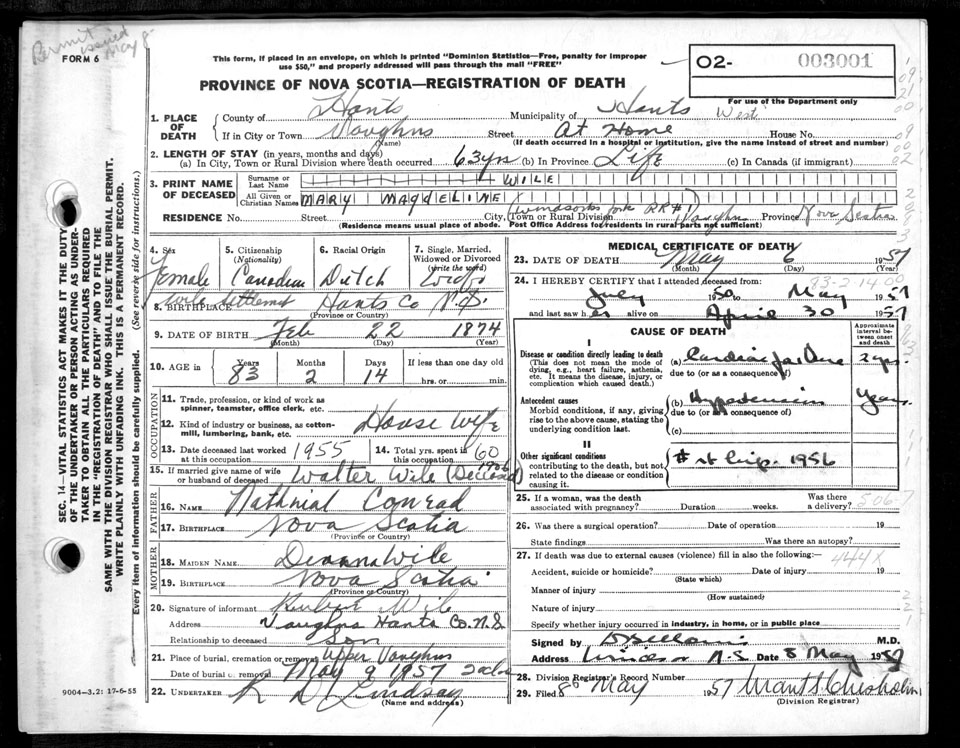 Permit issued May 8
FORM 6
This form, if placed in an envelope, on which is printed "Dominion Statistics—Free, penalty for improper
use $50," and properly addressed will pass through the mail "FREE"
PROVINCE OF NOVA SCOTIA—REGISTRATION OF DEATH
02- 003001
For use of the Department only
1. PLACE OF DEATH
County of Hants Municipality of Hants West
If in City or Town Vaughns Street At Home House No.
(Name) (If death occurred in a hospital or institution, give the name instead of street and number)
2. LENGTH OF STAY (in years, months and days)
(a) In City, Town or Rural Division where death occurred 63 yrs (b) In Province Life (c) In Canada (if immigrant)
3. PRINT NAME OF DECEASED
Surname or Last Name WILE
All Given or Christian Names MARY MAGDELINE
RESIDENCE No. Street City, Town or Rural Division Windsor Forks RR# Vaughn Province Nova Scotia
(Residence means usual place of abode. Post Office Address for residents in rural parts not sufficient)
4. Sex Female
5. Citizenship (Nationality) Canadian
6. Racial Origin Dutch
7. Single, Married, Widowed or Divorced (write the word) Widow
8. BIRTHPLACE Wile Settlement Hants Co N.S.
(Province or Country)
9. DATE OF BIRTH Feb 22 1874
(Month) (Day) (Year)
10. AGE in Years 83 Months 2 Days 14 If less than one day
hrs. or min.
OCCUPATION
11. Trade, profession, or kind of work as
spinner, teamster, office clerk, etc.
12. Kind of industry or business, as cotton-
mill, lumbering, bank, etc. House Wife
13. Date deceased last worked at this occupation 1955
14. Total yrs. spent in this occupation 60
15. If married give name of wife
or husband of deceased Walter Wile (Deceased) 1906
FATHER
16. NAME Nathnial Conrad
17. BIRTHPLACE Nova Scotia
(Province or Country)
MOTHER
18. MAIDEN NAME Wile
19. BIRTHPLACE Nova Scotia
(Province or Country)
20. Signature of informant Wile
Address Vaughns Hants Co. N.S.
Relationship to deceased Son
21. Place of burial, cremation or removal Upper Vaughns
Date of burial or removal May 9 1957
22. UNDERTAKER R D Lindsay
(Name and address)
MEDICAL CERTIFICATE OF DEATH
23. DATE OF DEATH May 6 1957
(Month) (Day) (Year)
24. I HEREBY CERTIFY that I attended deceased from:
July 1950 to May 1957
and last saw her alive on April 30 1957
CAUSE OF DEATH
Approximate interval between onset and death
I
Disease or condition directly leading to death
(This does not mean the mode of
dying, e.g., heart failure, asthenia,
etc. It means the disease, injury, or
complication which caused death.)
(a) Cardiac failure 2 yrs.
due to (or as a consequence of)
Antecedent causes
Morbid conditions, if any, giving
rise to the above cause, stating the
underlying condition last.
(b) Hypertension Years
due to (or as a consequence of)
(c)
II
Other significant conditions
contributing to the death, but not
related to the disease or condition
causing it.
# rt hip. 1956
25. If a woman, was the death
associated with pregnancy? Duration weeks. Was there a delivery?
26. Was there a surgical operation? Date of operation 19
State findings Was there an autopsy?
27. If death was due to external causes (violence) fill in also the following:—
444X
Accident, suicide or homicide? Date of injury 19
(State which)
Manner of injury
(How sustained)
Nature of injury
Specify whether injury occurred in industry, in home, or in public place
Signed by M.D.
Address Windsor N.S. Date 8 May 1957
28. Division Registrar's Record Number
29. Filed 8th May 1957 Grant S. Chisholm
(Division Registrar)
9004-3.2: 17-6-55
SEC. 14—VITAL STATISTICS ACT MAKES IT THE DUTY
OF THE UNDERTAKER OR PERSON ACTING AS UNDER-
TAKER TO OBTAIN ALL THE PARTICULARS REQUIRED
IN THE "REGISTRATION OF DEATH" AND TO FILE THE
SAME WITH THE DIVISION REGISTRAR WHO SHALL ISSUE THE BURIAL PERMIT.
WRITE PLAINLY WITH UNFADING INK. THIS IS A PERMANENT RECORD.
Every item of information should be carefully supplied. (See reverse side for instructions.)